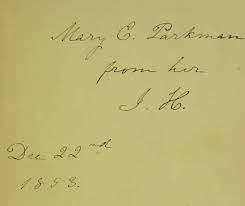 Mary E. Parkman
from her
J. H.
Dec 22nd
1853.